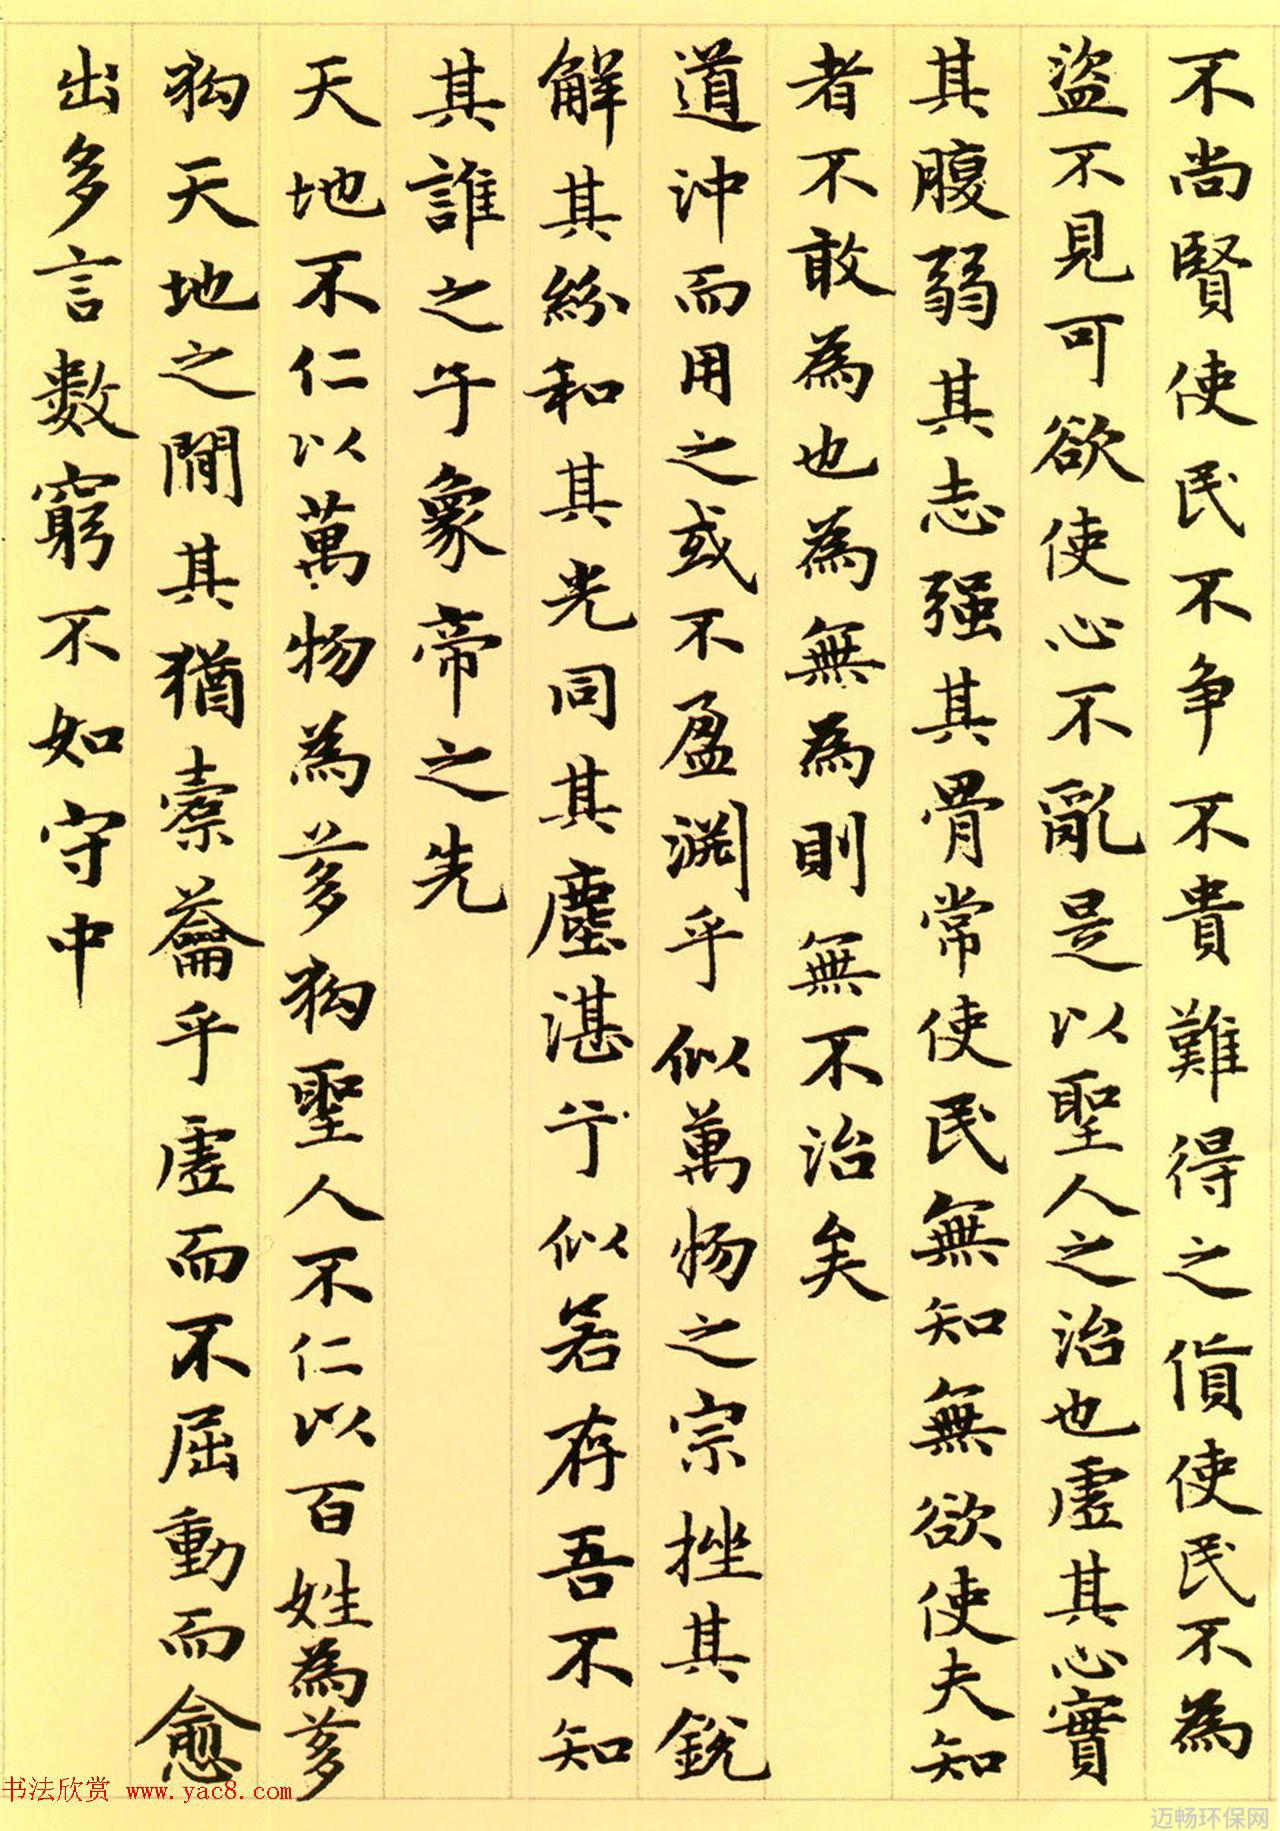 不尚賢使民不争不貴難得之貨使民不為
盜不見可欲使心不亂是以聖人之治也虛其心實
其腹弱其志强其骨常使民無知無欲使夫知
者不敢為也為無為則無不治矣
道沖而用之或不盈淵乎似萬物之宗挫其銳
解其紛和其光同其塵湛兮似若存吾不知
其誰之子象帝之先
天地不仁以萬物為芻狗聖人不仁以百姓為芻
狗天地之間其猶橐籥乎虛而不屈動而愈
出多言數窮不如守中
书法欣赏 www.yac8.com
迈畅环保网